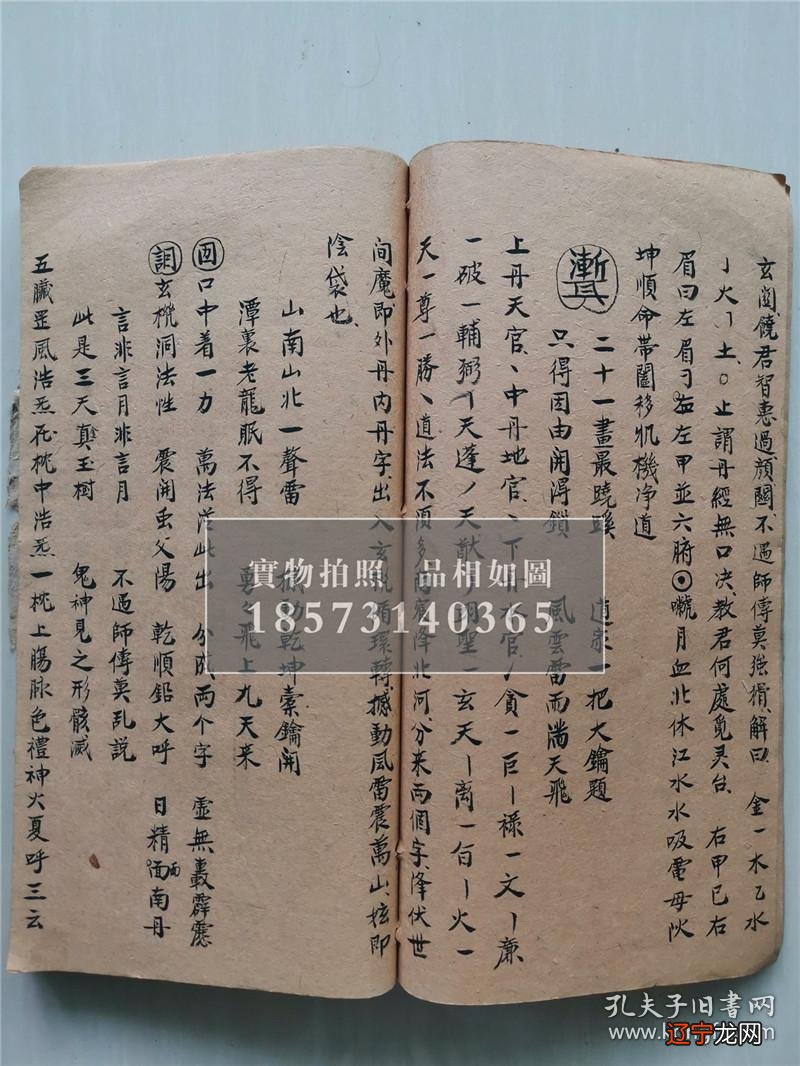 玄関饒君智惠過顔閔不過師傳莫強猜解曰 金一木乙水
丿火丨土○止謂丹經無口决教君何處覓灵台 右甲已右
眉曰左眉刁 左甲並六腑 月血北休江水水吸電母吙
坤順命帯閣移 機净道
漸耳
二十一畫最蹺蹊 道家一把大鑰題
只得因由開淂鎖 風雲雷雨満天飛
上丹天官、中丹地官、丶下丹水官、丿貪一巨丨祿一文丨廉
一破一輔弼丨天蓬丿天猷丿翊聖一玄天丨离一 丨火一
天一尊一勝丶道法不須多 降北河分来两個字降伏世
间魔即外丹内丹字出入玄 循環轉撼動風雷震萬山 即
陰袋也
山南山北一聲雷 動乾坤橐鑰開
潭裏老龍眠不得 飛上九天来
囙口中着一力 萬法從此出 分成两个字 虚無轟霹靂
玄 洞法性 震開 父陽 乾順鉛大呼 日精 南丹
言非言月非言月 不過師傳莫乱説
此是三天真玉樹 鬼神見之形骸滅
五臟罡風浩炁 枕中浩炁一枕上腸脉色禮神火夏呼三云
實物拍照 品相如圖
18573140365
孔夫子旧書网
辽宁龙网